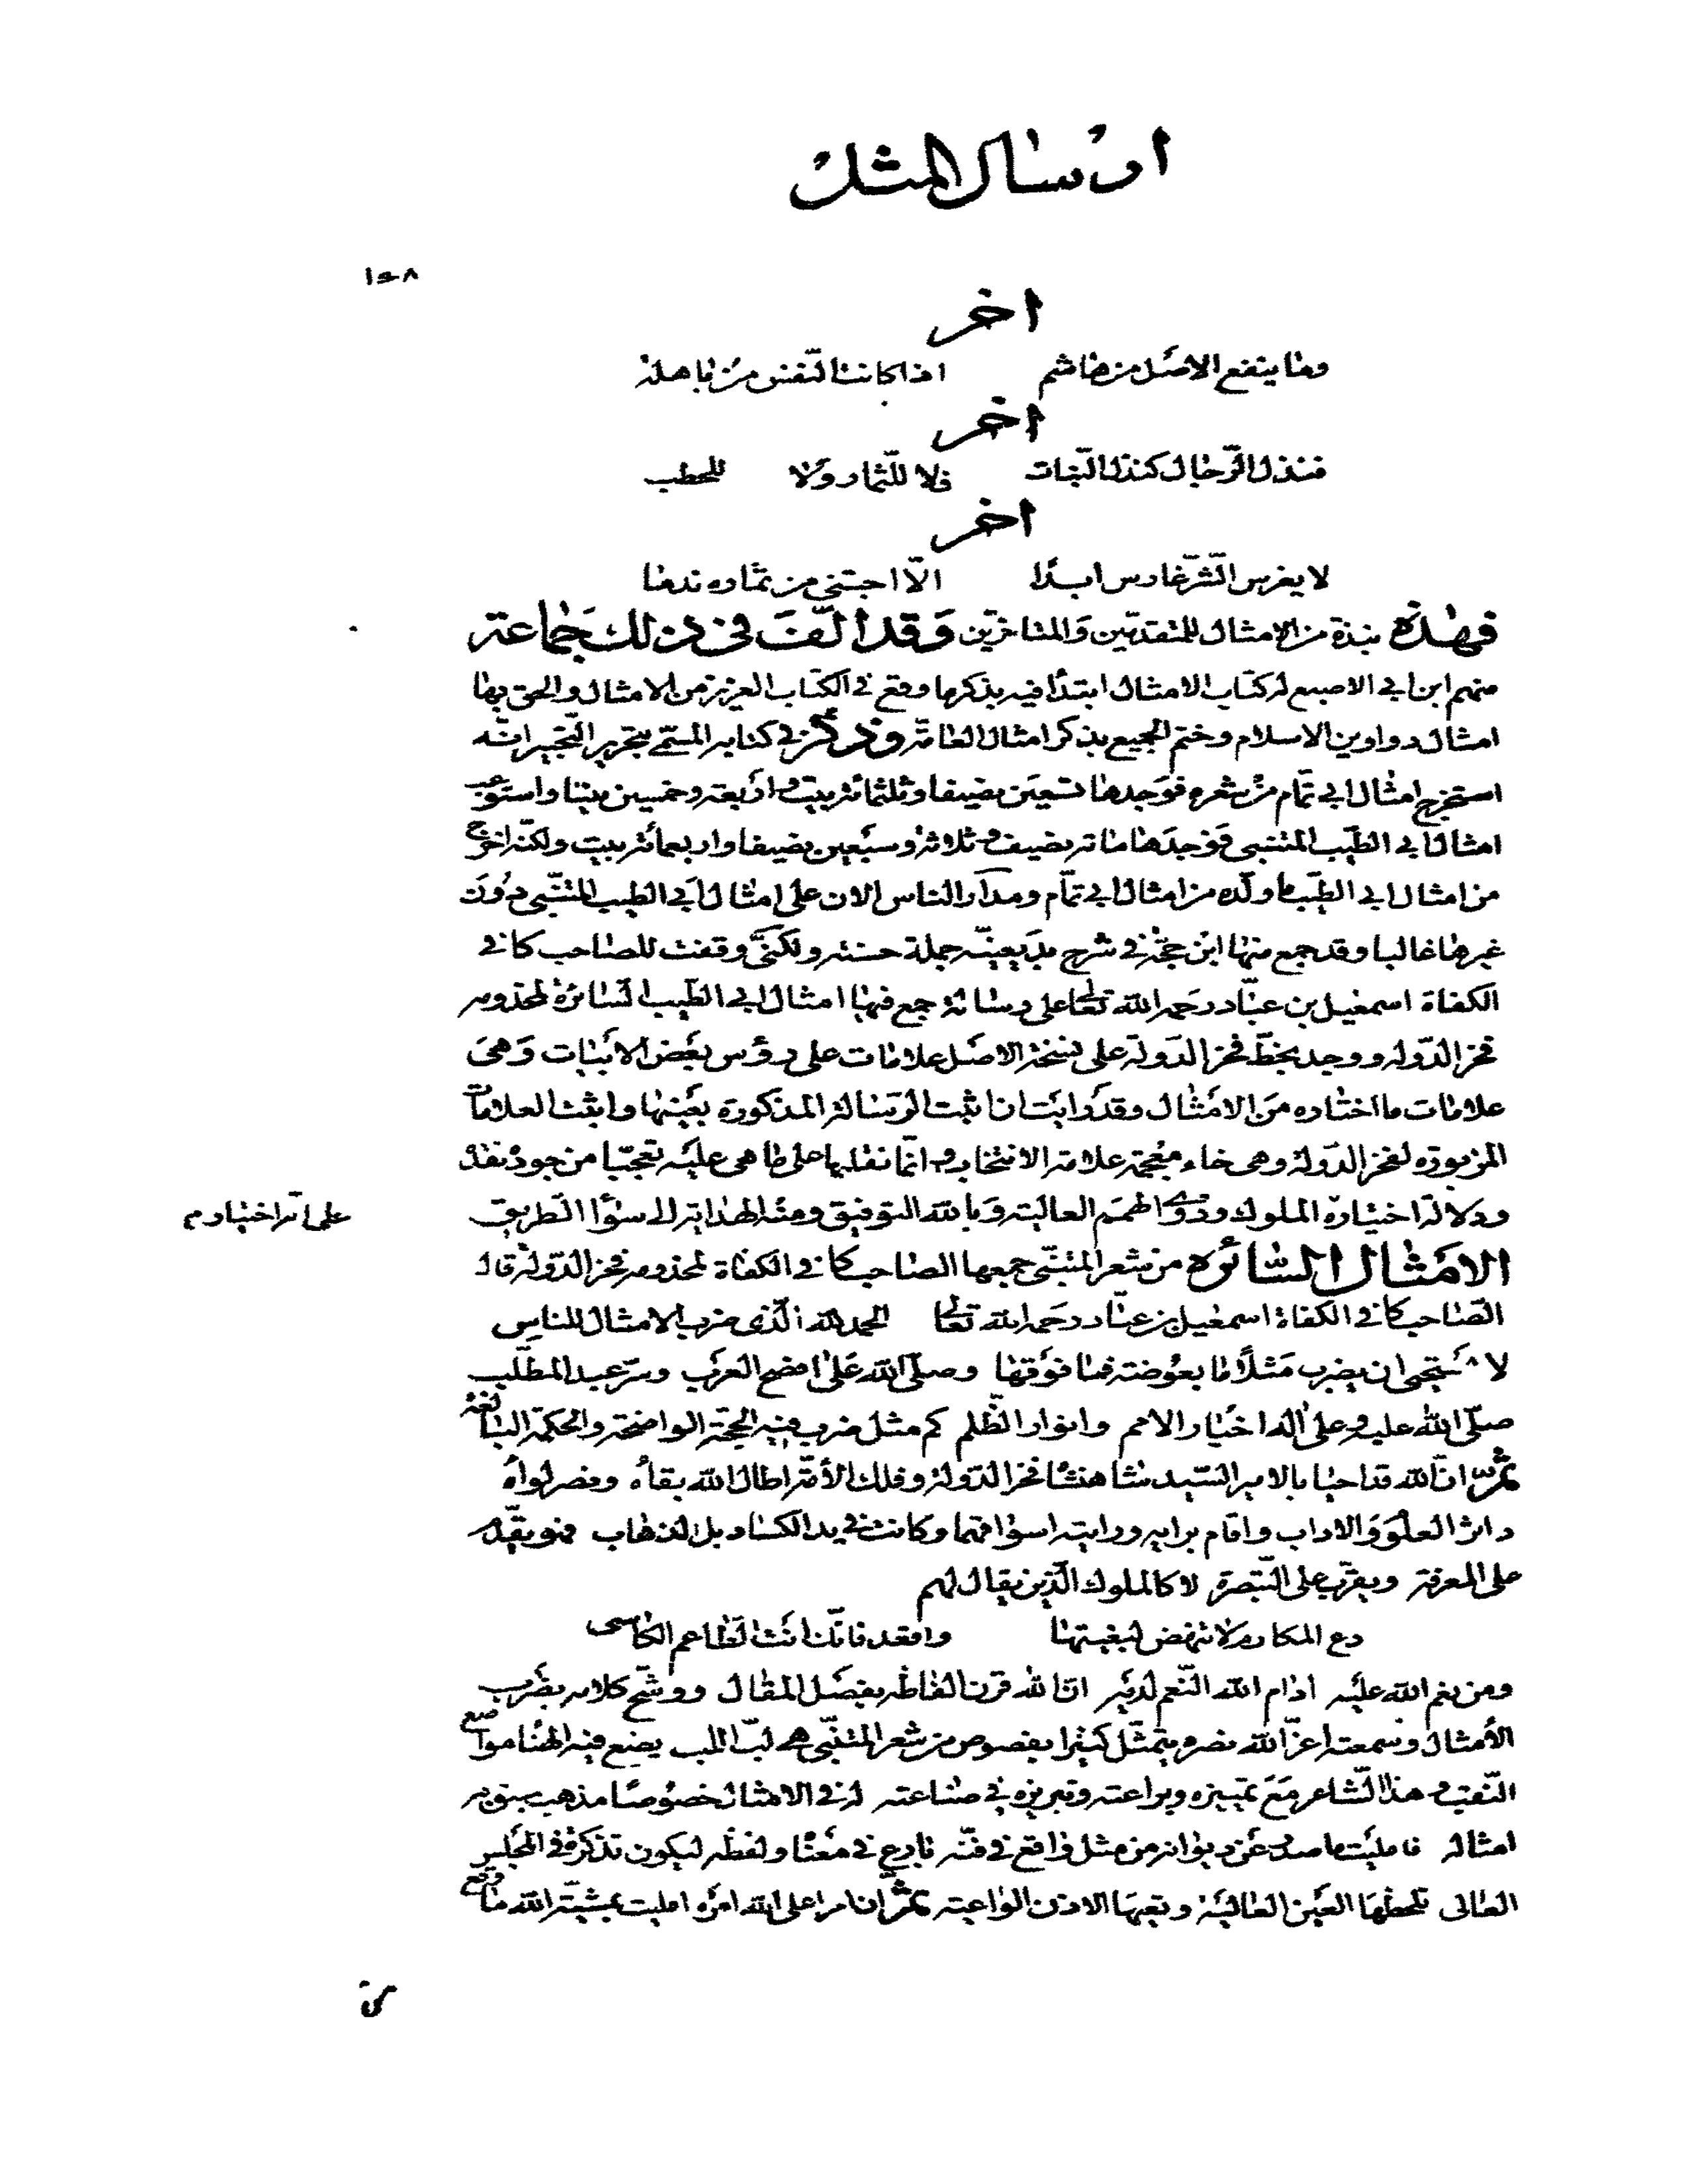 ارسال المثل
١٥٨
اخر
وما ينفع الاصل من هاشم اذا كانت النفس من باهله
اخر
فنذل الرّجال كنذل النّبات فلا للثّمار ولا للحطب
اخر
لا يغرس الشّر غارس ابدا الّا اجتنى من ثماره ندما
فهذه نبذة من الامثال للمتقدّمين والمتاخرين وقد الّف في ذلك جماعة
منهم ابن ابي الاصبع له كتاب الامثال ابتدأ فيه بذكر ما وقع في الكتاب العزيز من الامثال والحق بها
امثال دواوين الاسلام وختم الجميع بذكر امثال العامّة وذكر في كتابه المسمّى بتحرير التّحبير انّه
استخرج امثال ابي تمام من شعره فوجدها تسعين نصيفا وثلثمائة بيت واربعة وخمسين بيتا واستوعب
امثال ابي الطيّب المتنبي فوجدها مائة نصيف وثلاثة وسبعين نصيفا واربعمائة بيت ولكنّه اخرج
من امثال ابي الطيّب ما ولّده من امثال ابي تمّام ومدار الناس الان على امثال ابي الطيب المتنّبي دون
غيرها غالبا وقد جمع منها ابن حجّة في شرح بديعيّته جملة حسنة ولكنّى وقفت للصاحب كافي
الكفاة اسمعيل بن عبّاد رحمه الله تعالى على رسالة جمع فيها امثال ابي الطّيب السّائرة لمخدومه
فخر الدّوله ووجد بخطّ فخر الدّولة على نسخة الاصل علامات على رؤس بعض الابيات وهي
علامات ما اختاره من الامثال وقد رايت ان اثبت الرّسالة المذكورة بعينها واثبت العلامات
المزبورة لفخر الدّولة وهي خاء معجمة علامة الانتخاب وانّما نقلتها على ما هي عليه تعجّبا من جودة نقده
ودلالة اختياره الملوك وذوى الهمم العالية وبالله التوفيق ومنه الهداية الى سوآ الطّريق
على انّ اختيارم
الامثال السّائره من شعر المتنبّى جمعها الصاحب كافي الكفاة لمخدومه فخر الدّولة قال
الصّاحب كافي الكفاة اسمعيل بن عبّاد رحمه الله تعالى الحمد لله الّذى ضرب الامثال للناس
لا يستحيى ان يضرب مثلا ما بعوضة فما فوقها وصلّى الله على افصح العرب وسرّ عبد المطّلب
صلّى الله عليه وعلى اله اخيار الامم وانوار الظّلم كم مثل ضرب فيه الحجّة الواضحة والحكمة البالغة
ثمّ انّ الله قد احيا بالامير السّيد شاهنشا فخر الدّولة وفلك الأمّة اطال الله بقاه ونصر لواه
داثر العلم والاداب واقام برايه ورايته اسواقهما وكانت في يد الكساد بل الذهاب فهو يقبّل
على المعرفة ويقرّب على التّبصرة لا كالملوك الّذين يقال لهم
دع المكارم لا تنهض لبغيتها واقعد فانّك انت الطّاعم الكاسى
ومن نعم الله عليه ادام الله النّعم لديه انّ الله قرن الفاظه بفصل المقال ووشّح كلامه بضرب
الأمثال وسمعته اعزّ الله نصره يتمثّل كثيرا بفصوص من شعر المتنبّى هي لبّ اللب يضع فيها الهنا مواضع
النّقب وهذا الشّاعر مع تميّزه وبراعته وتبريزه في صناعته له في الامثال خصوصا مذهب سبق به
امثاله فامليت ما صدر عن ديوانه من مثل رائع في فنّه بارع في معناه ولفظه ليكون تذكرة في المجلس
العالى تلحظها العين العالية وتعيها الاذن الواعية ثمّ ان امر اعلى الله امره امليت بمشيّة الله ما وقع